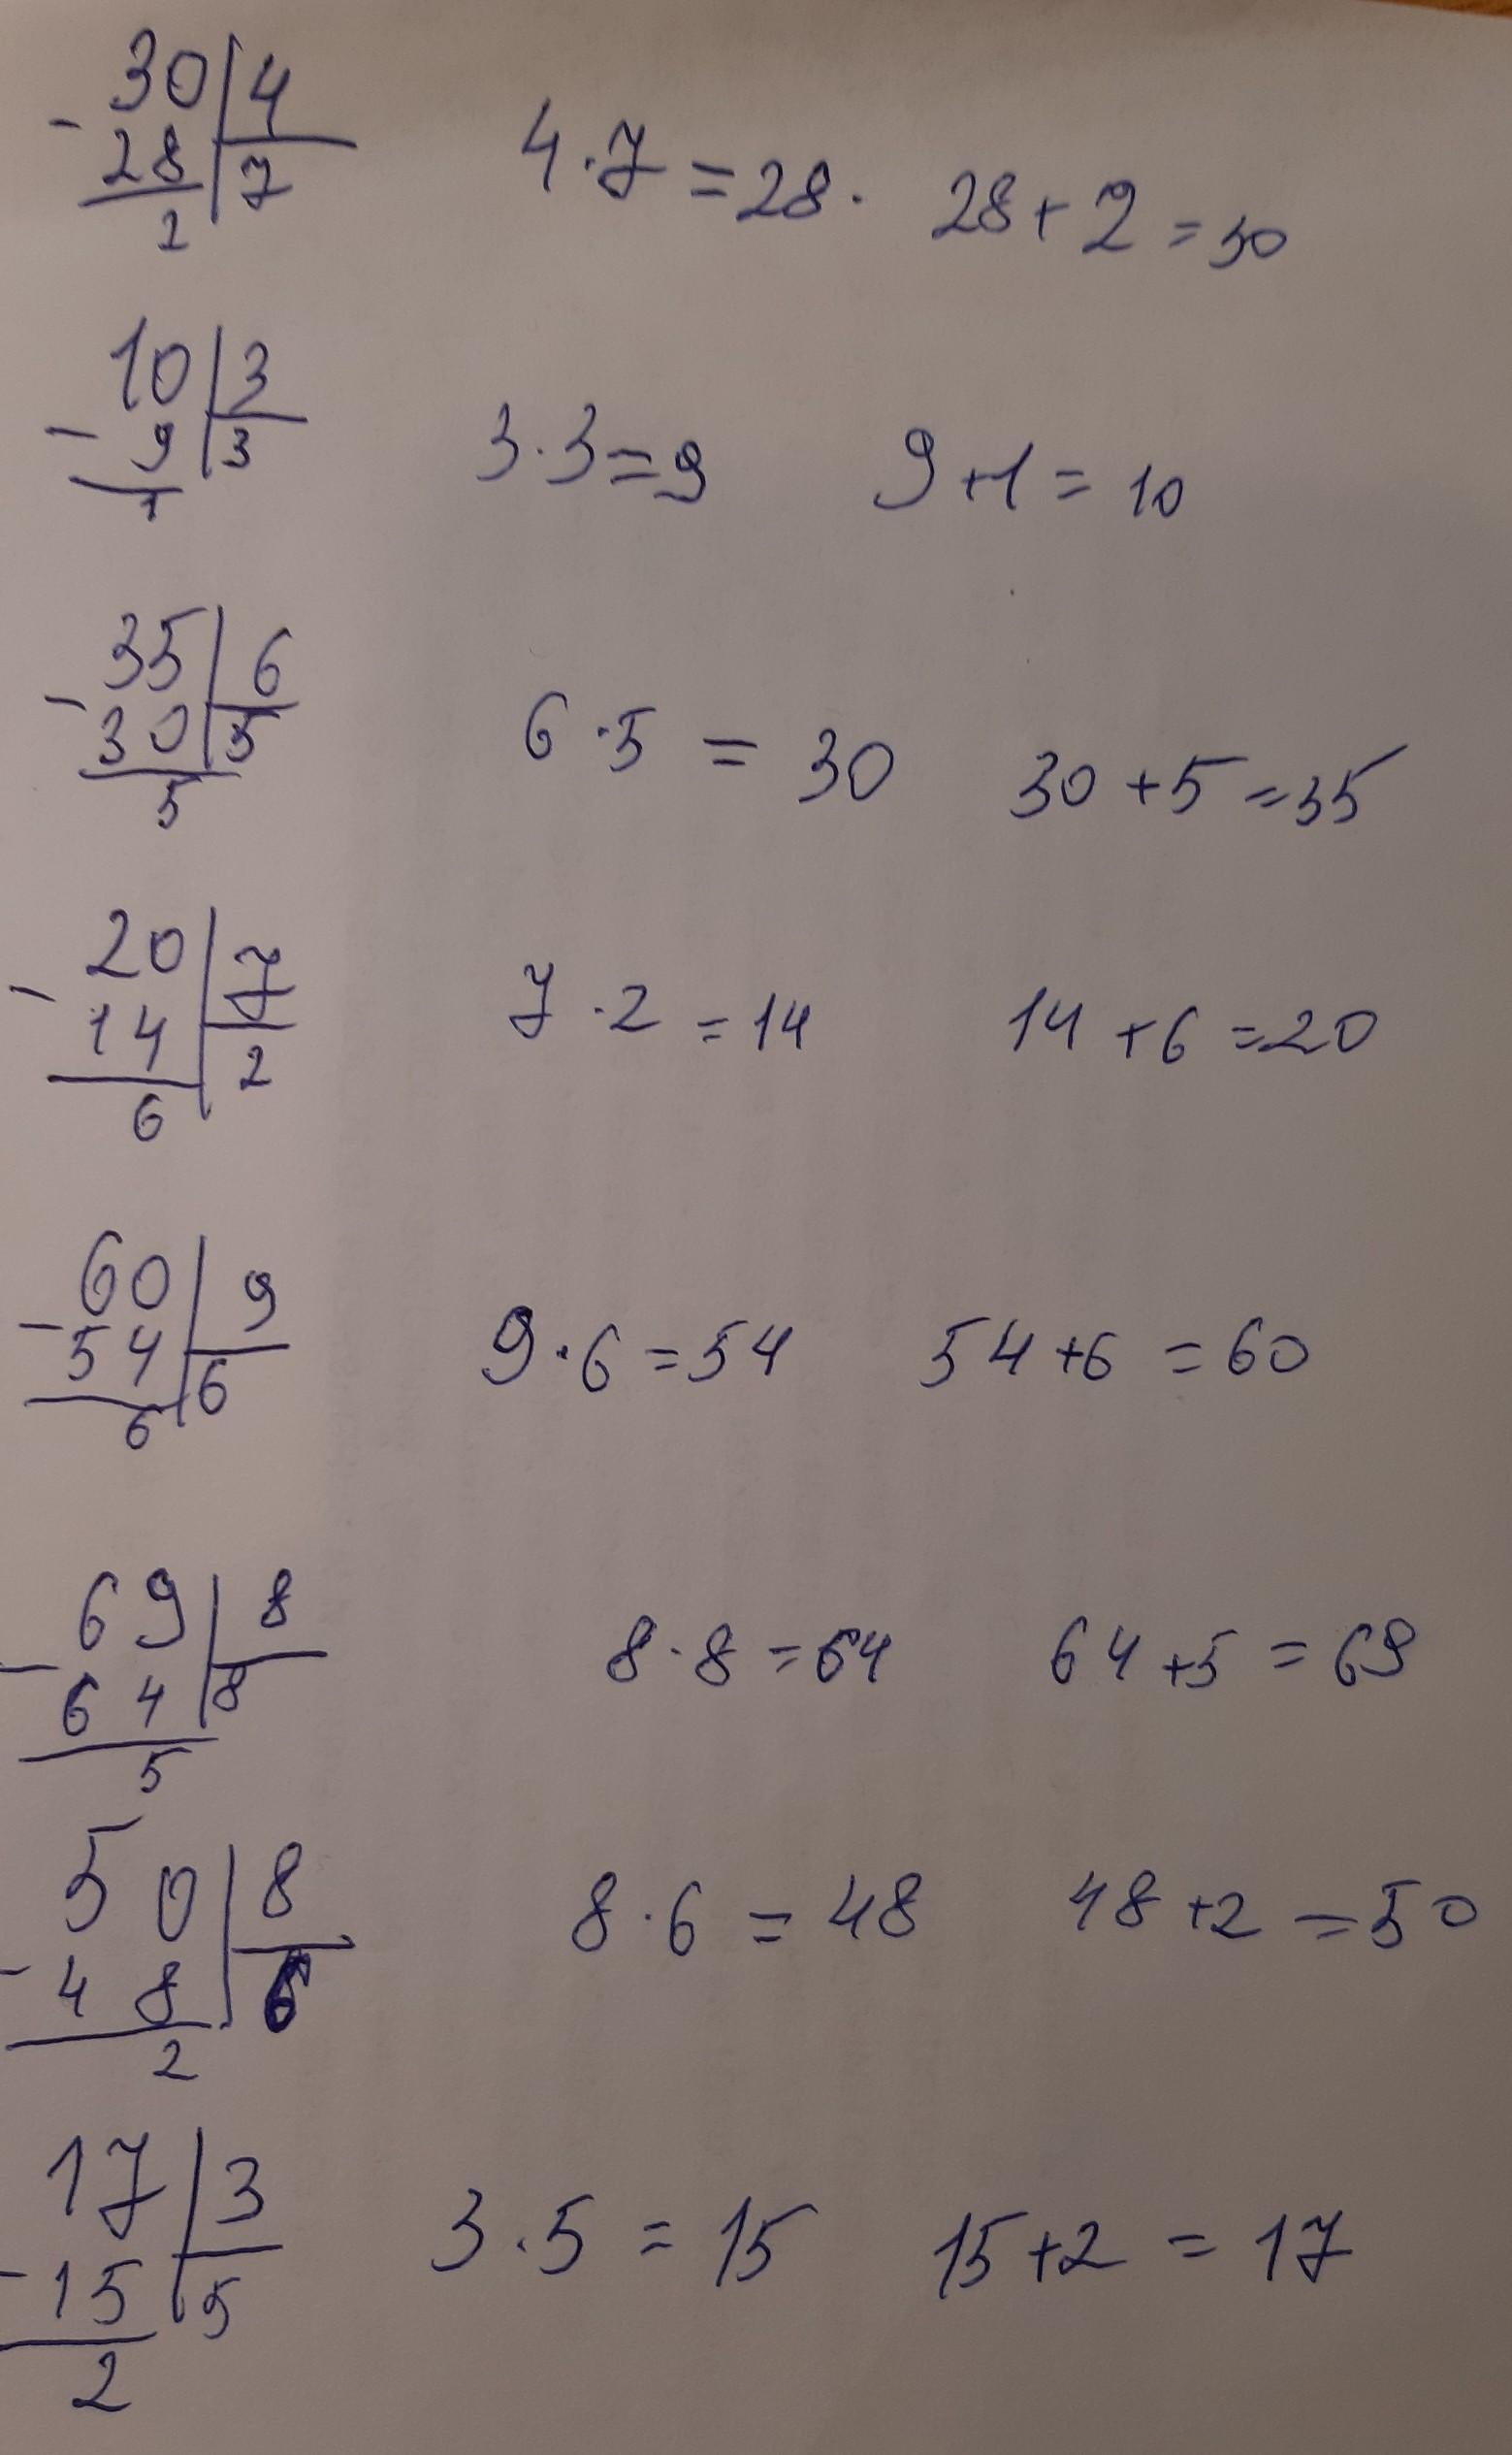 30 | 4
- 28 | 7 4·7 = 28. 28 + 2 = 30
2
10 | 3
- 9 | 3 3·3 = 9 9 + 1 = 10
1
35 | 6
- 30 | 5 6·5 = 30 30 + 5 = 35
5
20 | 7
- 14 | 2 7·2 = 14 14 + 6 = 20
6
60 | 9
- 54 | 6 9·6 = 54 54 + 6 = 60
6
69 | 8
- 64 | 8 8·8 = 64 64 + 5 = 69
5
50 | 8
- 48 | 6 8·6 = 48 48 + 2 = 50
2
17 | 3
- 15 | 5 3·5 = 15 15 + 2 = 17
2